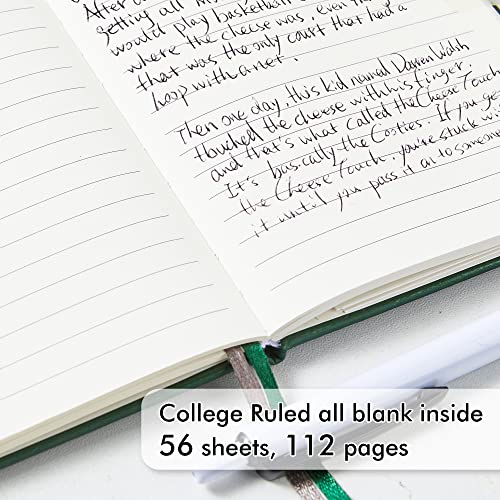 After
getting all M
would play basketball
where the cheese was, even tho
that was the only court that had a
hoop with a net.
Then one day, this kid named Darren Walsh
touched the cheese with his finger,
and that's what called the Cheese Touch
It's basically the Cooties. If you get
the Cheese Touch, you're stuck wi
it until you pass it on to someon
College Ruled all blank inside
56 sheets, 112 pages